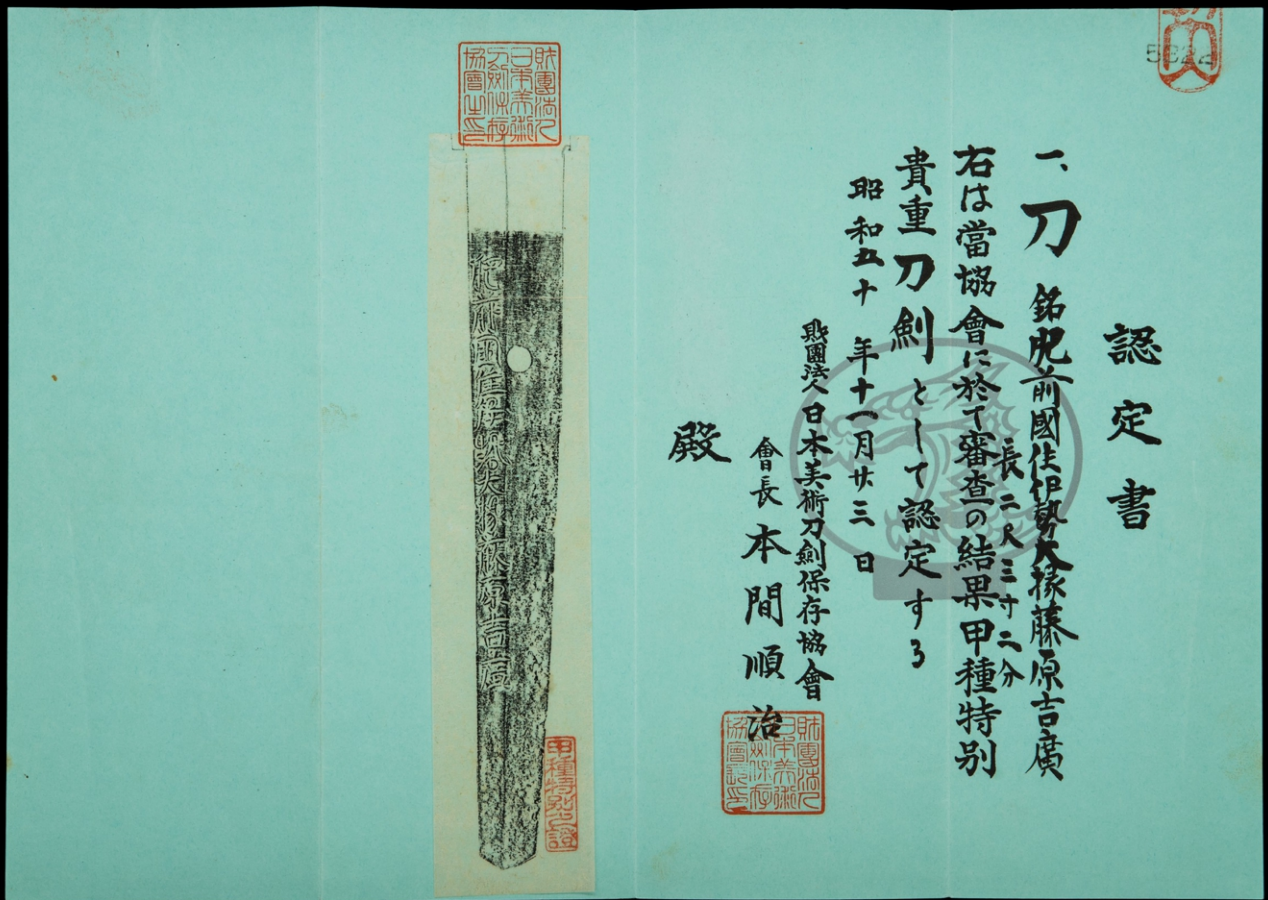 認定書
一、刀 銘肥前國住伊勢大掾藤原吉廣
長二尺三寸二分
右は當協會に於て審査の結果甲種特別
貴重刀劍として認定する
昭和五十年十一月廿三日
財團法人日本美術刀劍保存協會
會長 本間順治
殿
財團法人日本美術刀劍保存協會長印
財團法人日本美術刀劍保存協會之印
肥前國住伊勢大掾藤原吉廣
甲種特別之證